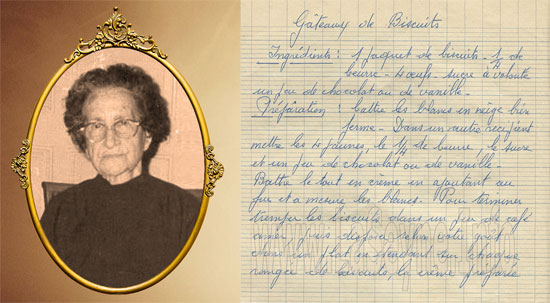 Gâteaux de Biscuits
Ingrédients : 1 paquet de biscuits - 1/4 de
beurre - 4 oeufs - sucre à volonté
un peu de chocolat ou de vanille -
Préparation : battre les blancs en neige bien
ferme - Dans un autre récipient
mettre les 4 jaunes, le 1/4 de beurre, le sucre
et un peu de chocolat ou de vanille -
Battre le tout en crème en ajoutant au
fur et a mesure les blancs - Pour terminer
tremper les biscuits dans un peu de café
amer puis disposer selon votre goût
dans un plat en étendant sur chaque
rangée de biscuits, la crème préparée